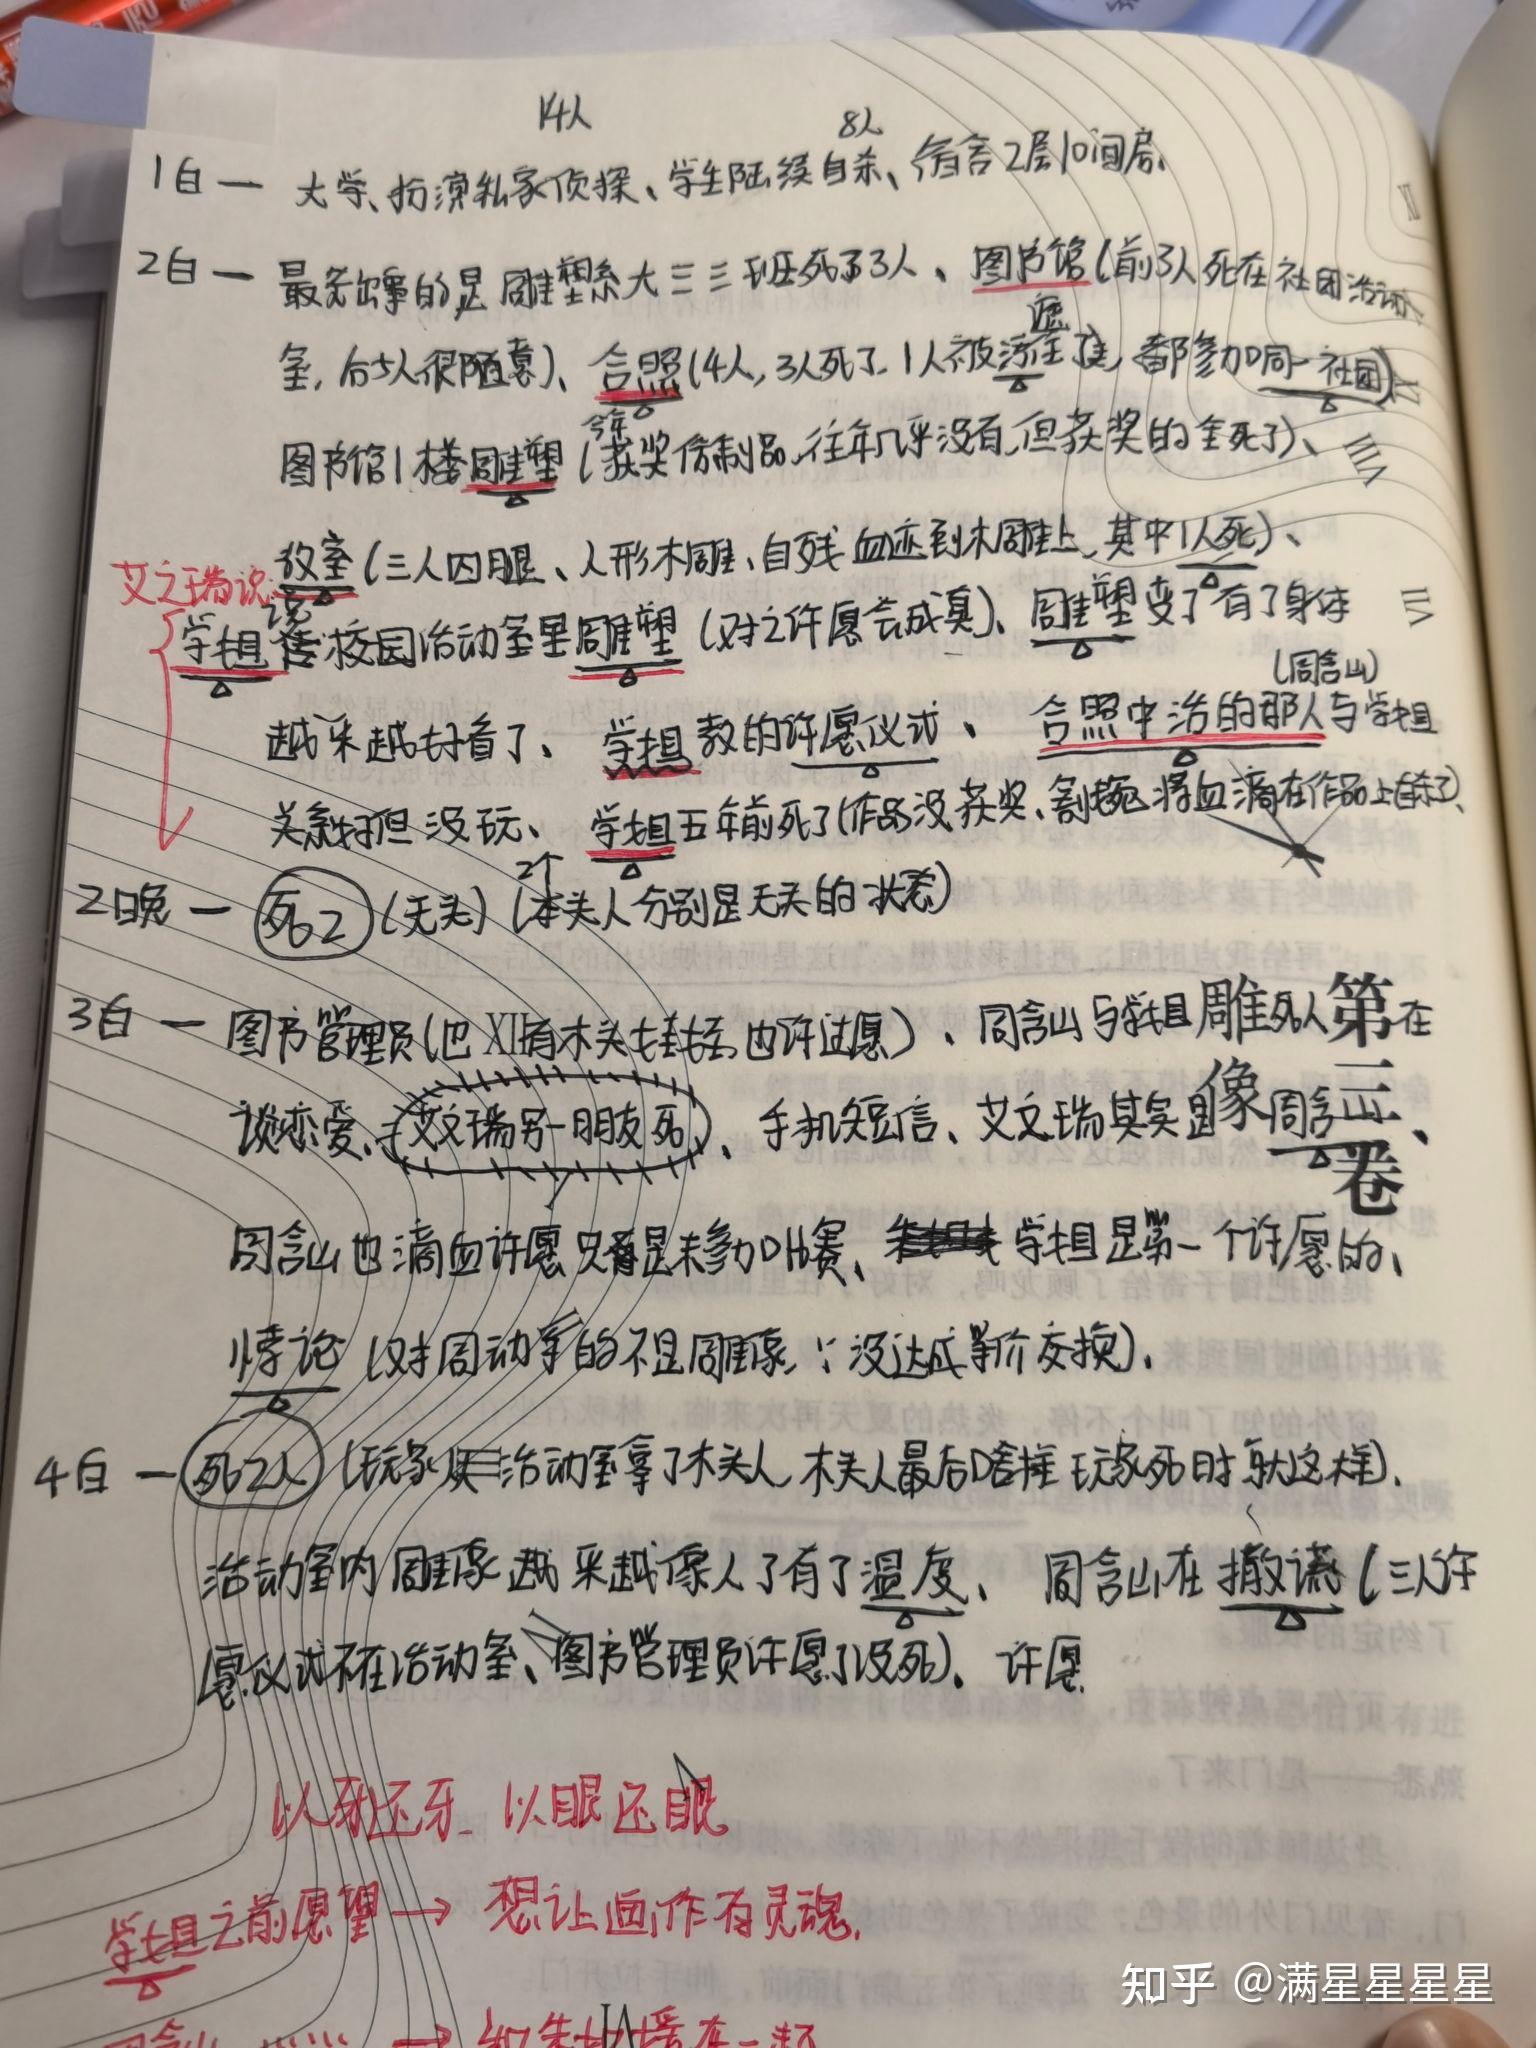 14人 8人
1白 — 大学、扮演私家侦探、学生陆续自杀、宿舍2层10间房、
2白 — 最先出事的是雕塑系大三三班死了3人、图书馆(前3人死在社团活动
室,后5人很随意)、合照(4人,3人死了1人被 遮 了,都参加同一社团)
今年
图书馆1楼雕塑(获奖仿制品,往年几乎没有,但获奖的全死了)、
教室(三人闭眼、人形木雕、自残血迹到木雕上,其中1人死)、
艾文瑞说
学姐说校园活动室里雕塑(对之许愿会成真)、雕塑变了有了身体
(周含山)
越来越好看了、学姐教的许愿仪式、合照中活的那人与学姐
关系好但没玩、学姐五年前死了(作品没获奖、割腕将血滴在作品上自杀了)、
2个
2晚 — 死2(无头)(木头人分别是无头的状态)
3白 — 图书管理员(也有木头娃娃,也许过愿)、周含山与学姐 死 在
谈恋爱、艾文瑞另一朋友死、手机短信、艾文瑞其实是周含山、
周含山也滴血许愿只是未参加比赛、学姐是第一个许愿的、
悖论(对周动手的不是雕像,∵没达成等价交换)、
4白 — 死2人(玩家从活动室拿了木头人,木头人最后啥样玩家死时就这样)、
活动室内雕像越来越像人了有了温度、周含山在撒谎(三人许
愿仪式不在活动室、图书管理员许愿了没死)、许愿
以牙还牙 以眼还眼
学姐之前愿望→想让画作有灵魂.
周含山 → 在一起
第三卷
雕像
XII
XI
VIII
VII
知乎 @满星星星星